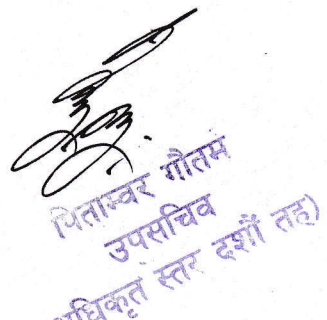 पिताम्वर गौतम
उपसचिव
अधिकृत स्तर दशौं तह)